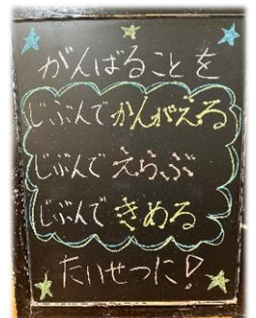 がんばることを
じぶんでかんがえる
じぶんでえらぶ
じぶんできめる
たいせつに!